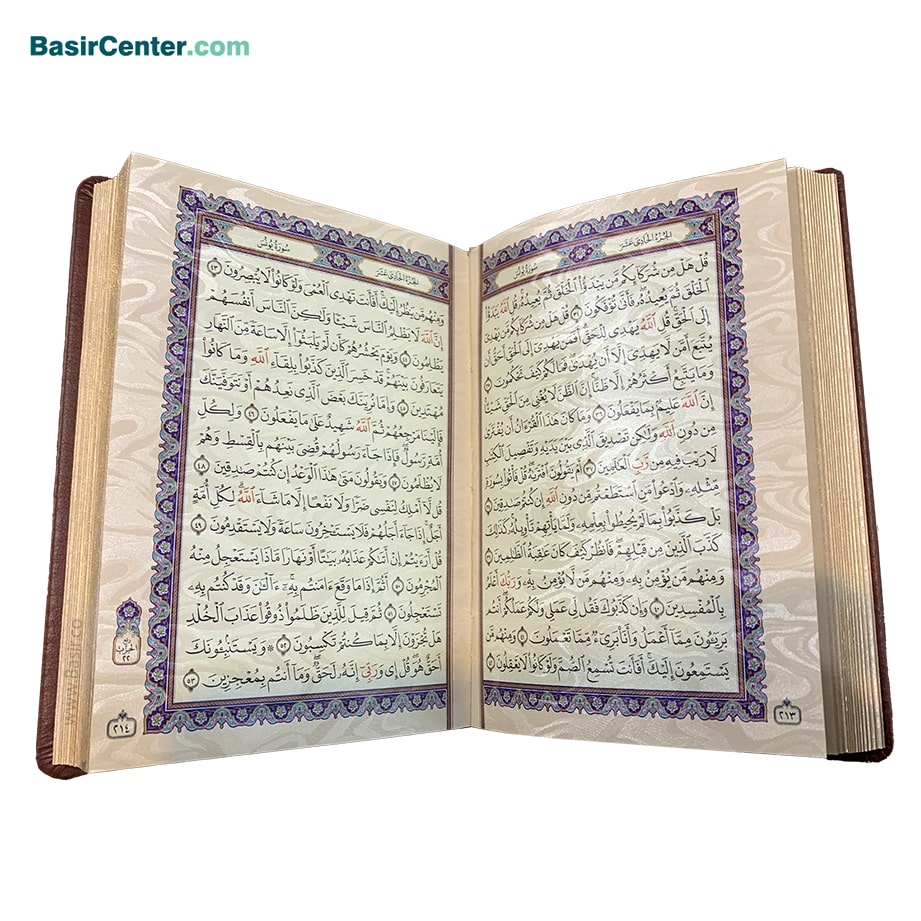 BasirCenter.com
الجزء الحادي عشر
سورة يونس
قُلْ هَلْ مِن شُرَكَآئِكُم مَّن يَبْدَؤُا۟ ٱلْخَلْقَ ثُمَّ يُعِيدُهُۥ قُلِ ٱللَّهُ يَبْدَؤُا۟
ٱلْخَلْقَ ثُمَّ يُعِيدُهُۥ فَأَنَّىٰ تُؤْفَكُونَ ٣٤ قُلْ هَلْ مِن شُرَكَآئِكُم مَّن يَهْدِىٓ
إِلَى ٱلْحَقِّ قُلِ ٱللَّهُ يَهْدِى لِلْحَقِّ أَفَمَن يَهْدِىٓ إِلَى ٱلْحَقِّ أَحَقُّ أَن
يُتَّبَعَ أَمَّن لَّا يَهِدِّىٓ إِلَّآ أَن يُهْدَىٰ فَمَا لَكُمْ كَيْفَ تَحْكُمُونَ ٣٥
وَمَا يَتَّبِعُ أَكْثَرُهُمْ إِلَّا ظَنًّا إِنَّ ٱلظَّنَّ لَا يُغْنِى مِنَ ٱلْحَقِّ شَيْـًٔا
إِنَّ ٱللَّهَ عَلِيمٌۢ بِمَا يَفْعَلُونَ ٣٦ وَمَا كَانَ هَٰذَا ٱلْقُرْءَانُ أَن يُفْتَرَىٰ
مِن دُونِ ٱللَّهِ وَلَٰكِن تَصْدِيقَ ٱلَّذِى بَيْنَ يَدَيْهِ وَتَفْصِيلَ ٱلْكِتَٰبِ
لَا رَيْبَ فِيهِ مِن رَّبِّ ٱلْعَٰلَمِينَ ٣٧ أَمْ يَقُولُونَ ٱفْتَرَىٰهُ قُلْ فَأْتُوا۟ بِسُورَةٍ
مِّثْلِهِۦ وَٱدْعُوا۟ مَنِ ٱسْتَطَعْتُم مِّن دُونِ ٱللَّهِ إِن كُنتُمْ صَٰدِقِينَ ٣٨
بَلْ كَذَّبُوا۟ بِمَا لَمْ يُحِيطُوا۟ بِعِلْمِهِۦ وَلَمَّا يَأْتِهِمْ تَأْوِيلُهُۥ كَذَٰلِكَ
كَذَّبَ ٱلَّذِينَ مِن قَبْلِهِمْ فَٱنظُرْ كَيْفَ كَانَ عَٰقِبَةُ ٱلظَّٰلِمِينَ ٣٩
وَمِنْهُم مَّن يُؤْمِنُ بِهِۦ وَمِنْهُم مَّن لَّا يُؤْمِنُ بِهِۦ وَرَبُّكَ أَعْلَمُ
بِٱلْمُفْسِدِينَ ٤٠ وَإِن كَذَّبُوكَ فَقُل لِّى عَمَلِى وَلَكُمْ عَمَلُكُمْ أَنتُم
بَرِيٓـُٔونَ مِمَّآ أَعْمَلُ وَأَنَا۠ بَرِىٓءٌ مِّمَّا تَعْمَلُونَ ٤١ وَمِنْهُم مَّن
يَسْتَمِعُونَ إِلَيْكَ أَفَأَنتَ تُسْمِعُ ٱلصُّمَّ وَلَوْ كَانُوا۟ لَا يَعْقِلُونَ ٤٢
٢١٣
سورة يونس
الجزء الحادي عشر
وَمِنْهُم مَّن يَنظُرُ إِلَيْكَ أَفَأَنتَ تَهْدِى ٱلْعُمْىَ وَلَوْ كَانُوا۟ لَا يُبْصِرُونَ ٤٣
إِنَّ ٱللَّهَ لَا يَظْلِمُ ٱلنَّاسَ شَيْـًٔا وَلَٰكِنَّ ٱلنَّاسَ أَنفُسَهُمْ
يَظْلِمُونَ ٤٤ وَيَوْمَ يَحْشُرُهُمْ كَأَن لَّمْ يَلْبَثُوٓا۟ إِلَّا سَاعَةً مِّنَ ٱلنَّهَارِ
يَتَعَارَفُونَ بَيْنَهُمْ قَدْ خَسِرَ ٱلَّذِينَ كَذَّبُوا۟ بِلِقَآءِ ٱللَّهِ وَمَا كَانُوا۟
مُهْتَدِينَ ٤٥ وَإِمَّا نُرِيَنَّكَ بَعْضَ ٱلَّذِى نَعِدُهُمْ أَوْ نَتَوَفَّيَنَّكَ
فَإِلَيْنَا مَرْجِعُهُمْ ثُمَّ ٱللَّهُ شَهِيدٌ عَلَىٰ مَا يَفْعَلُونَ ٤٦ وَلِكُلِّ
أُمَّةٍ رَّسُولٌ فَإِذَا جَآءَ رَسُولُهُمْ قُضِىَ بَيْنَهُم بِٱلْقِسْطِ وَهُمْ
لَا يُظْلَمُونَ ٤٧ وَيَقُولُونَ مَتَىٰ هَٰذَا ٱلْوَعْدُ إِن كُنتُمْ صَٰدِقِينَ ٤٨
قُل لَّآ أَمْلِكُ لِنَفْسِى ضَرًّا وَلَا نَفْعًا إِلَّا مَا شَآءَ ٱللَّهُ لِكُلِّ أُمَّةٍ
أَجَلٌ إِذَا جَآءَ أَجَلُهُمْ فَلَا يَسْتَـْٔخِرُونَ سَاعَةً وَلَا يَسْتَقْدِمُونَ ٤٩
قُلْ أَرَءَيْتُمْ إِنْ أَتَىٰكُمْ عَذَابُهُۥ بَيَٰتًا أَوْ نَهَارًا مَّاذَا يَسْتَعْجِلُ مِنْهُ
ٱلْمُجْرِمُونَ ٥٠ أَثُمَّ إِذَا مَا وَقَعَ ءَامَنتُم بِهِۦٓ ءَآلْـَٰٔنَ وَقَدْ كُنتُم بِهِۦ
تَسْتَعْجِلُونَ ٥١ ثُمَّ قِيلَ لِلَّذِينَ ظَلَمُوا۟ ذُوقُوا۟ عَذَابَ ٱلْخُلْدِ
هَلْ تُجْزَوْنَ إِلَّا بِمَا كُنتُمْ تَكْسِبُونَ ٥٢ ۞ وَيَسْتَنۢبِـُٔونَكَ
أَحَقٌّ هُوَ قُلْ إِى وَرَبِّىٓ إِنَّهُۥ لَحَقٌّ وَمَآ أَنتُم بِمُعْجِزِينَ ٥٣
٢١٤